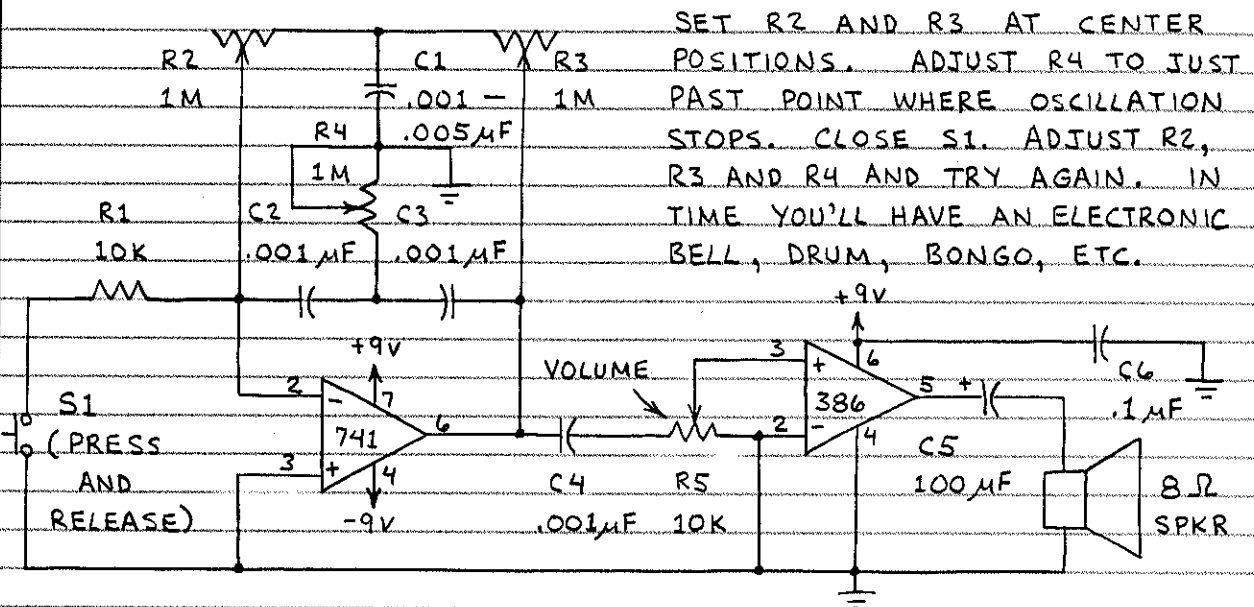 SET R2 AND R3 AT CENTER
POSITIONS. ADJUST R4 TO JUST
PAST POINT WHERE OSCILLATION
STOPS. CLOSE S1. ADJUST R2,
R3 AND R4 AND TRY AGAIN. IN
TIME YOU'LL HAVE AN ELECTRONIC
BELL, DRUM, BONGO, ETC.
R2
1M
C1
.001 –
.005 µF
R3
1M
R4
1M
R1
10K
C2
.001 µF
C3
.001 µF
+9V
2
-
7
741
6
3
+
4
-9V
S1
(PRESS
AND
RELEASE)
VOLUME
C4
.001µF
R5
10K
+9V
3
+
6
386
5
+
2
-
4
C6
.1 µF
C5
100 µF
8 Ω
SPKR